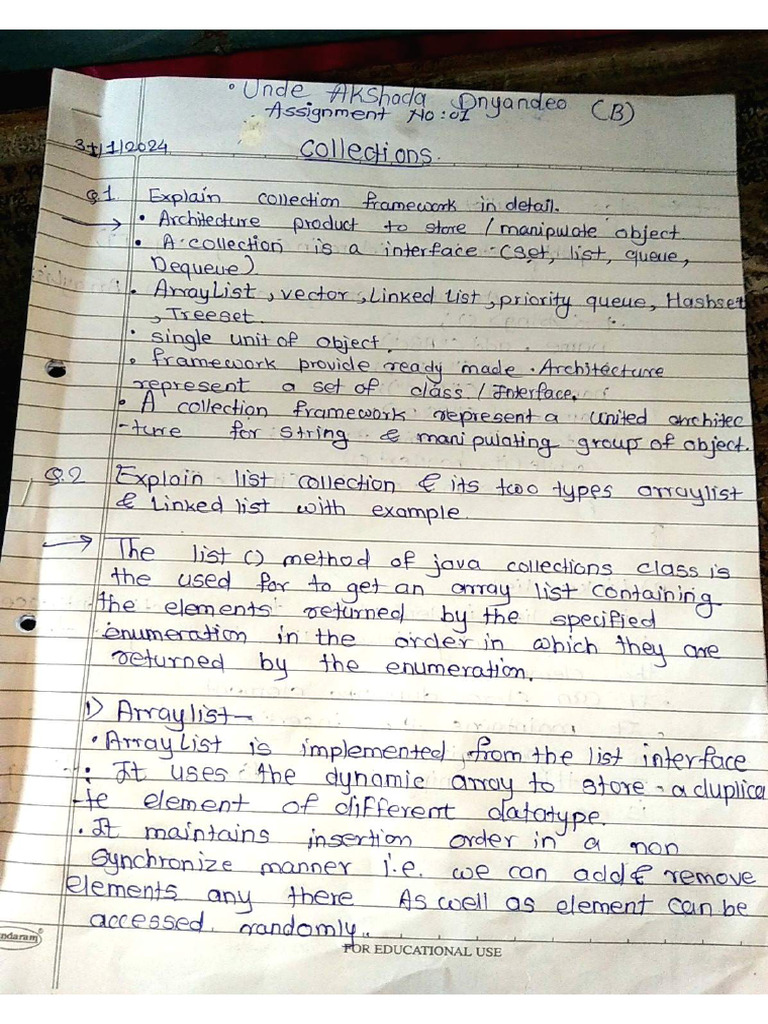 • Unde Akshada Dnyandeo (B)
Assignment No:01
31/1/2024
Collections.
Q.1 Explain collection framework in detail.
→ • Architecture product to store / manipulate object
• A collection is a interface (set, list, queue,
Dequeue)
• ArrayList, vector, Linked List, priority queue, Hashset
, Treeset.
• single unit of object.
• framework provide ready made Architecture
represent a set of class / Interface.
• A collection framework represent a united architec
-ture for string & manipulating group of object.
Q.2 Explain list collection & its two types arraylist
& Linked list with example.
→ The list () method of java collections class is
the used for to get an array list containing
the elements returned by the specified
enumeration in the order in which they are
returned by the enumeration.
1) Arraylist -
• ArrayList is implemented from the list interface
• It uses the dynamic array to store a duplica
-te element of different datatype.
• It maintains insertion order in a non
synchronize manner i.e. we can add & remove
elements any there As well as element can be
accessed randomly.
ndaram
FOR EDUCATIONAL USE